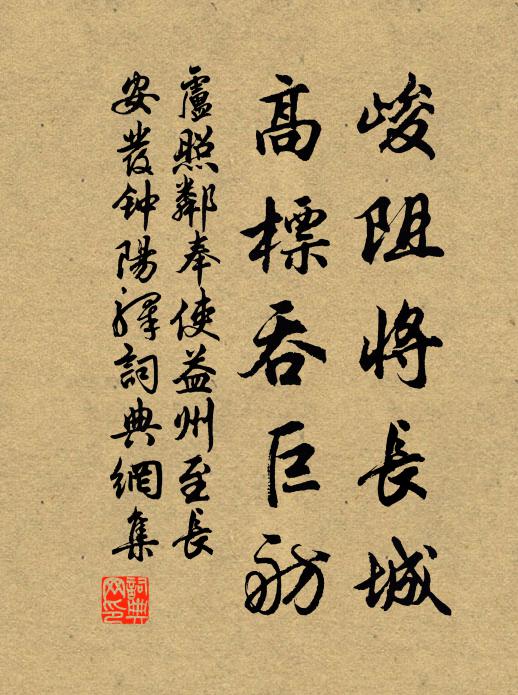 峻阻將長城
高標吞巨舫
盧照鄰奉使益州至長
安發钟陽驛詞典網集
詞典网印